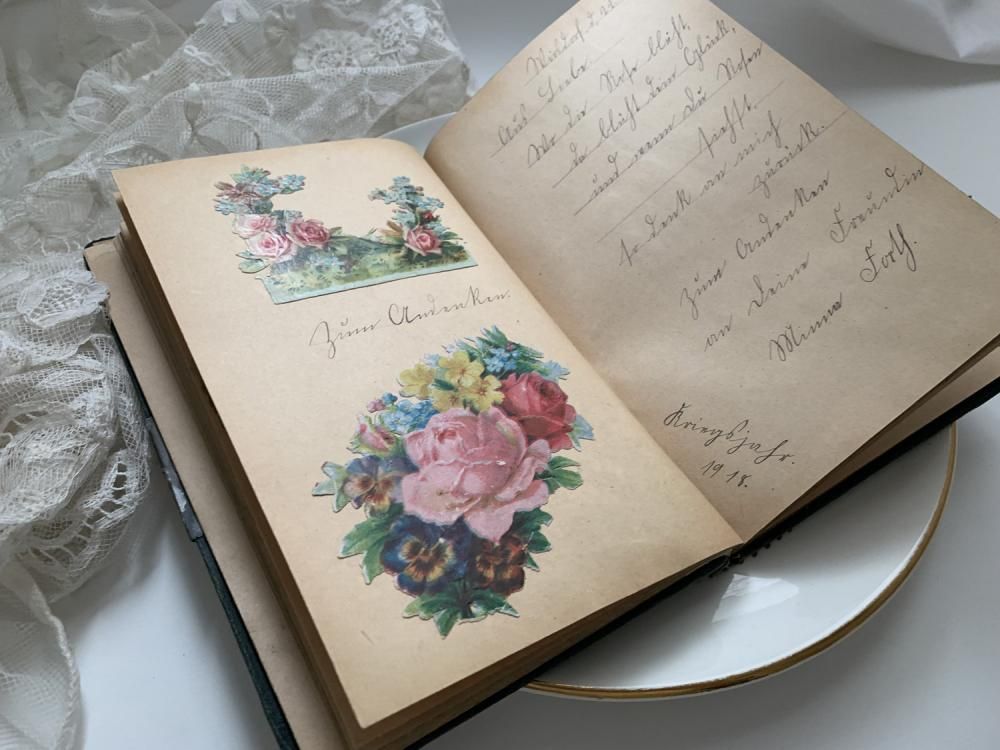 Zum Andenken.
Aus Liebe.
Wo die Rose blüht,
da blüht dein Glück,
und wenn Du Rosen
siehst.
so denk an mich
zurück.
Zum Andenken
an Deine Freundin
Minna Forth.
Kriegsjahr.
1918.